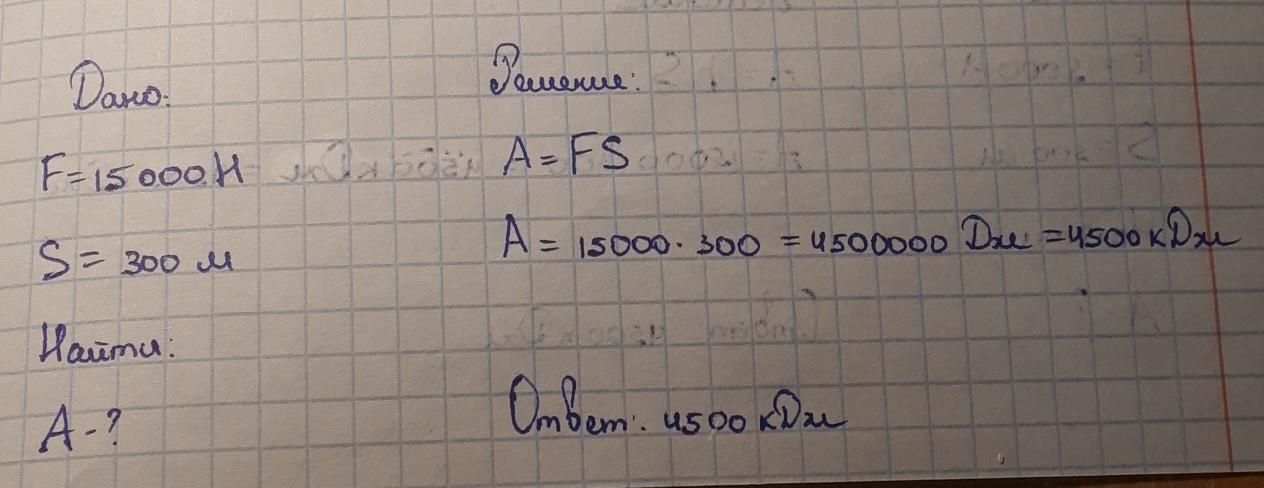 Дано:
F=15000Н
S= 300 м
Найти:
A-?
Решение:
A = FS
A = 15000·300 = 4500000 Дж =4500кДж
Ответ: 4500 кДж